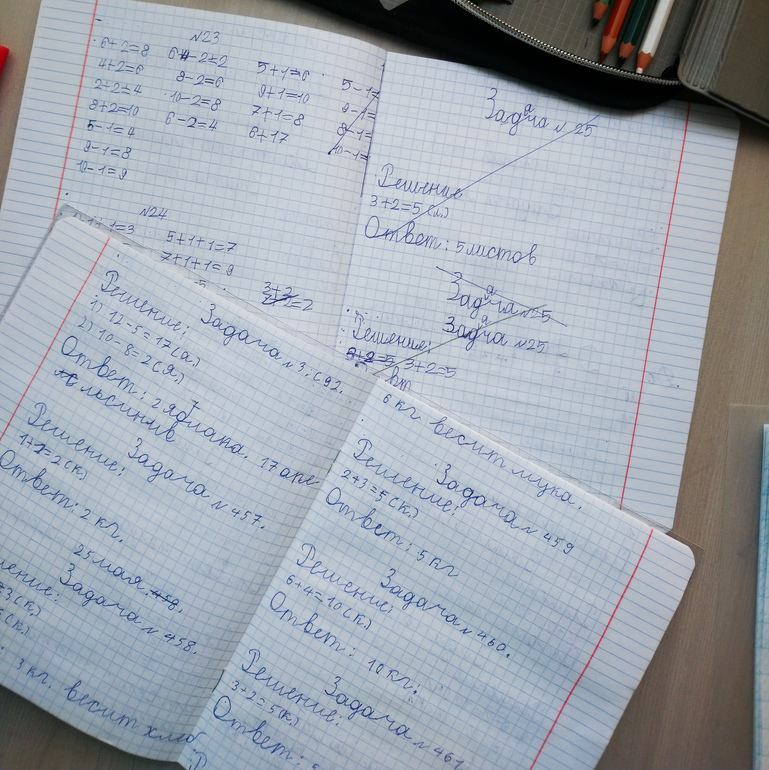 №23
6+2=8
4+2=6
2+2=4
8+2=10
5-1=4
9-1=8
10-1=9
6-4=2
8-2=6
10-2=8
6-2=4
5+1=6
9+1=10
7+1=8
6+17
5-1=
9-1=
8-1=
10-1=
№24
1+1=3
5+1+1=7
7+1+1=9
3+2
=2
Задача №25
Решение
3+2=5(л.)
Ответ: 5 листов
Задача №25
Задача №25
Решение:
6+2=5 3+2=5
Задача №3. с 92.
Решение:
1) 12-5=17(а.)
2) 10-8=2(Я.)
Ответ: 2 яблака. 17 апе
льсинив
Задача №457.
Решение:
1+1=2(к.)
Ответ: 2 кг.
25 мая 458.
Задача №458.
ение:
3(к.)
(к.)
: 3 кг. весит хлеб
6 кг. весит мука.
Задача №459
Решение:
2+3=5(к.)
Ответ: 5 кг
Задача №460.
Решение:
6+4=10(к.)
Ответ: 10 кг.
Задача №461
Решение:
3+2=5(к.)
Ответ: